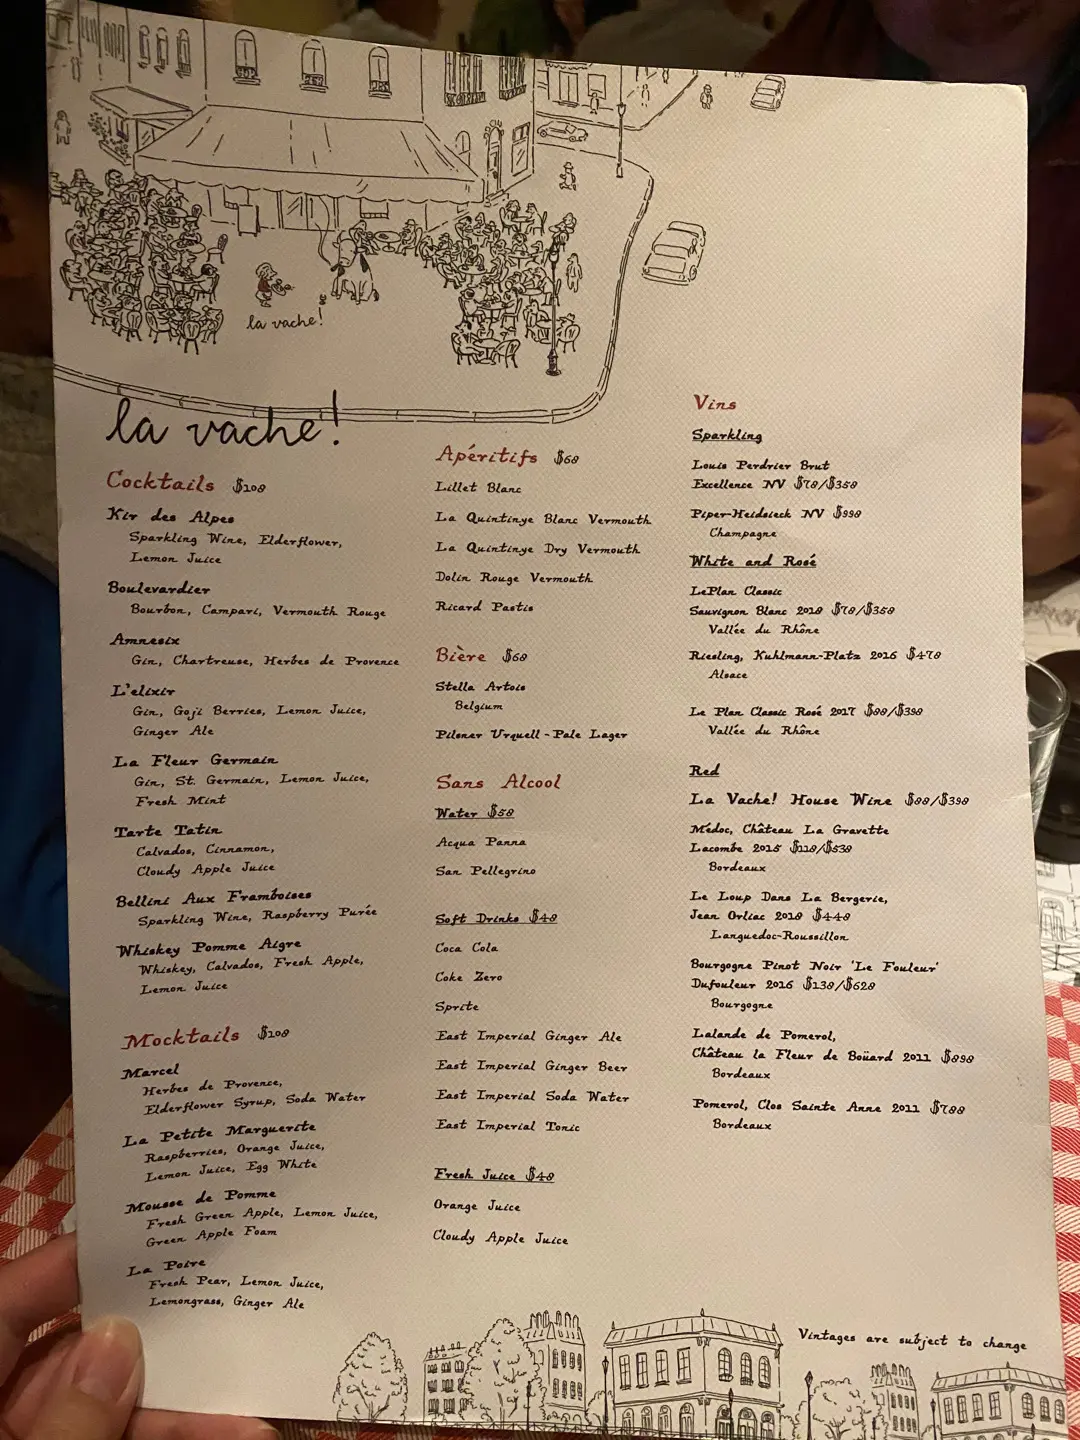 la vache!
la vache!
Cocktails $108
Kir des Alpes
Sparkling Wine, Elderflower,
Lemon Juice
Boulevardier
Bourbon, Campari, Vermouth Rouge
Amnesix
Gin, Chartreuse, Herbes de Provence
L'elixir
Gin, Goji Berries, Lemon Juice,
Ginger Ale
La Fleur Germain
Gin, St. Germain, Lemon Juice,
Fresh Mint
Tarte Tatin
Calvados, Cinnamon,
Cloudy Apple Juice
Bellini Aux Framboises
Sparkling Wine, Raspberry Purée
Whiskey Pomme Aigre
Whiskey, Calvados, Fresh Apple,
Lemon Juice
Mocktails $108
Marcel
Herbes de Provence,
Elderflower Syrup, Soda Water
La Petite Marguerite
Raspberries, Orange Juice,
Lemon Juice, Egg White
Mousse de Pomme
Fresh Green Apple, Lemon Juice,
Green Apple Foam
La Poire
Fresh Pear, Lemon Juice,
Lemongrass, Ginger Ale
Apéritifs $68
Lillet Blanc
La Quintinye Blanc Vermouth
La Quintinye Dry Vermouth
Dolin Rouge Vermouth
Ricard Pastis
Bière $68
Stella Artois
Belgium
Pilsner Urquell - Pale Lager
Sans Alcool
Water $58
Acqua Panna
San Pellegrino
Soft Drinks $48
Coca Cola
Coke Zero
Sprite
East Imperial Ginger Ale
East Imperial Ginger Beer
East Imperial Soda Water
East Imperial Tonic
Fresh Juice $48
Orange Juice
Cloudy Apple Juice
Vins
Sparkling
Louis Perdrier Brut
Excellence NV $78/$358
Piper-Heidsieck NV $998
Champagne
White and Rosé
LePlan Classic
Sauvignon Blanc 2018 $78/$358
Vallée du Rhône
Riesling, Kuhlmann-Platz 2016 $478
Alsace
Le Plan Classic Rosé 2017 $88/$398
Vallée du Rhône
Red
La Vache! House Wine $88/$398
Médoc, Château La Gravette
Lacombe 2015 $118/$538
Bordeaux
Le Loup Dans La Bergerie,
Jean Orliac 2018 $448
Languedoc-Roussillon
Bourgogne Pinot Noir 'Le Fouleur'
Dufouleur 2016 $138/$628
Bourgogne
Lalande de Pomerol,
Château la Fleur de Boüard 2011 $898
Bordeaux
Pomerol, Clos Sainte Anne 2011 $788
Bordeaux
Vintages are subject to change